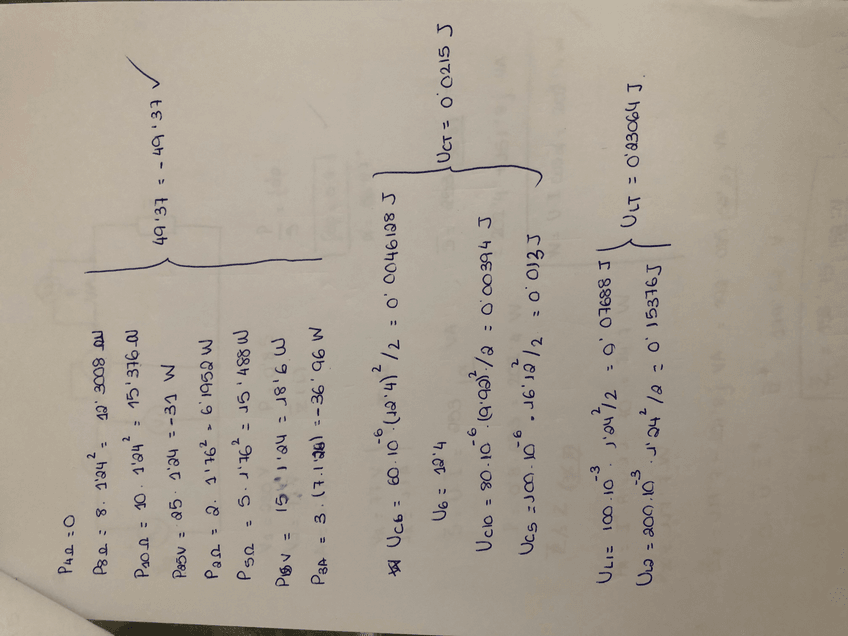 P4Ω = 0
P8Ω = 8 · 1'24² = 12'3008 W
P10Ω = 10 · 1'24² = 15'376 W
P25V = 25 · 1'24 = -31 W
P2Ω = 2 · 1'76² = 6'1952 W
P5Ω = 5 · 1'76² = 15'488 W
P15V = 15 · 1'24 = 18'6 W
P3A = 3 · (7·1'76) = -36'96 W
49'37 = -49'37 ✓
UC6 = 60·10⁻⁶ · (12'4)²/2 = 0'0046128 J
U6 = 12'4
UC10 = 80·10⁻⁶ · (9'92)²/2 = 0'00394 J
UC5 = 100·10⁻⁶ · 16'12²/2 = 0'013 J
UCT = 0'0215 J
UL1 = 100·10⁻³ · 1'24²/2 = 0'07688 J
UL2 = 200·10⁻³ · 1'24²/2 = 0'15376 J
ULT = 0'23064 J.